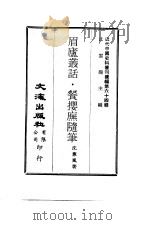 近代中國史料叢刊續編第六十四輯
沈雲龍主編
眉廬叢話・餐櫻廡隨筆
況蕙風著
文海出版社有限公司印行